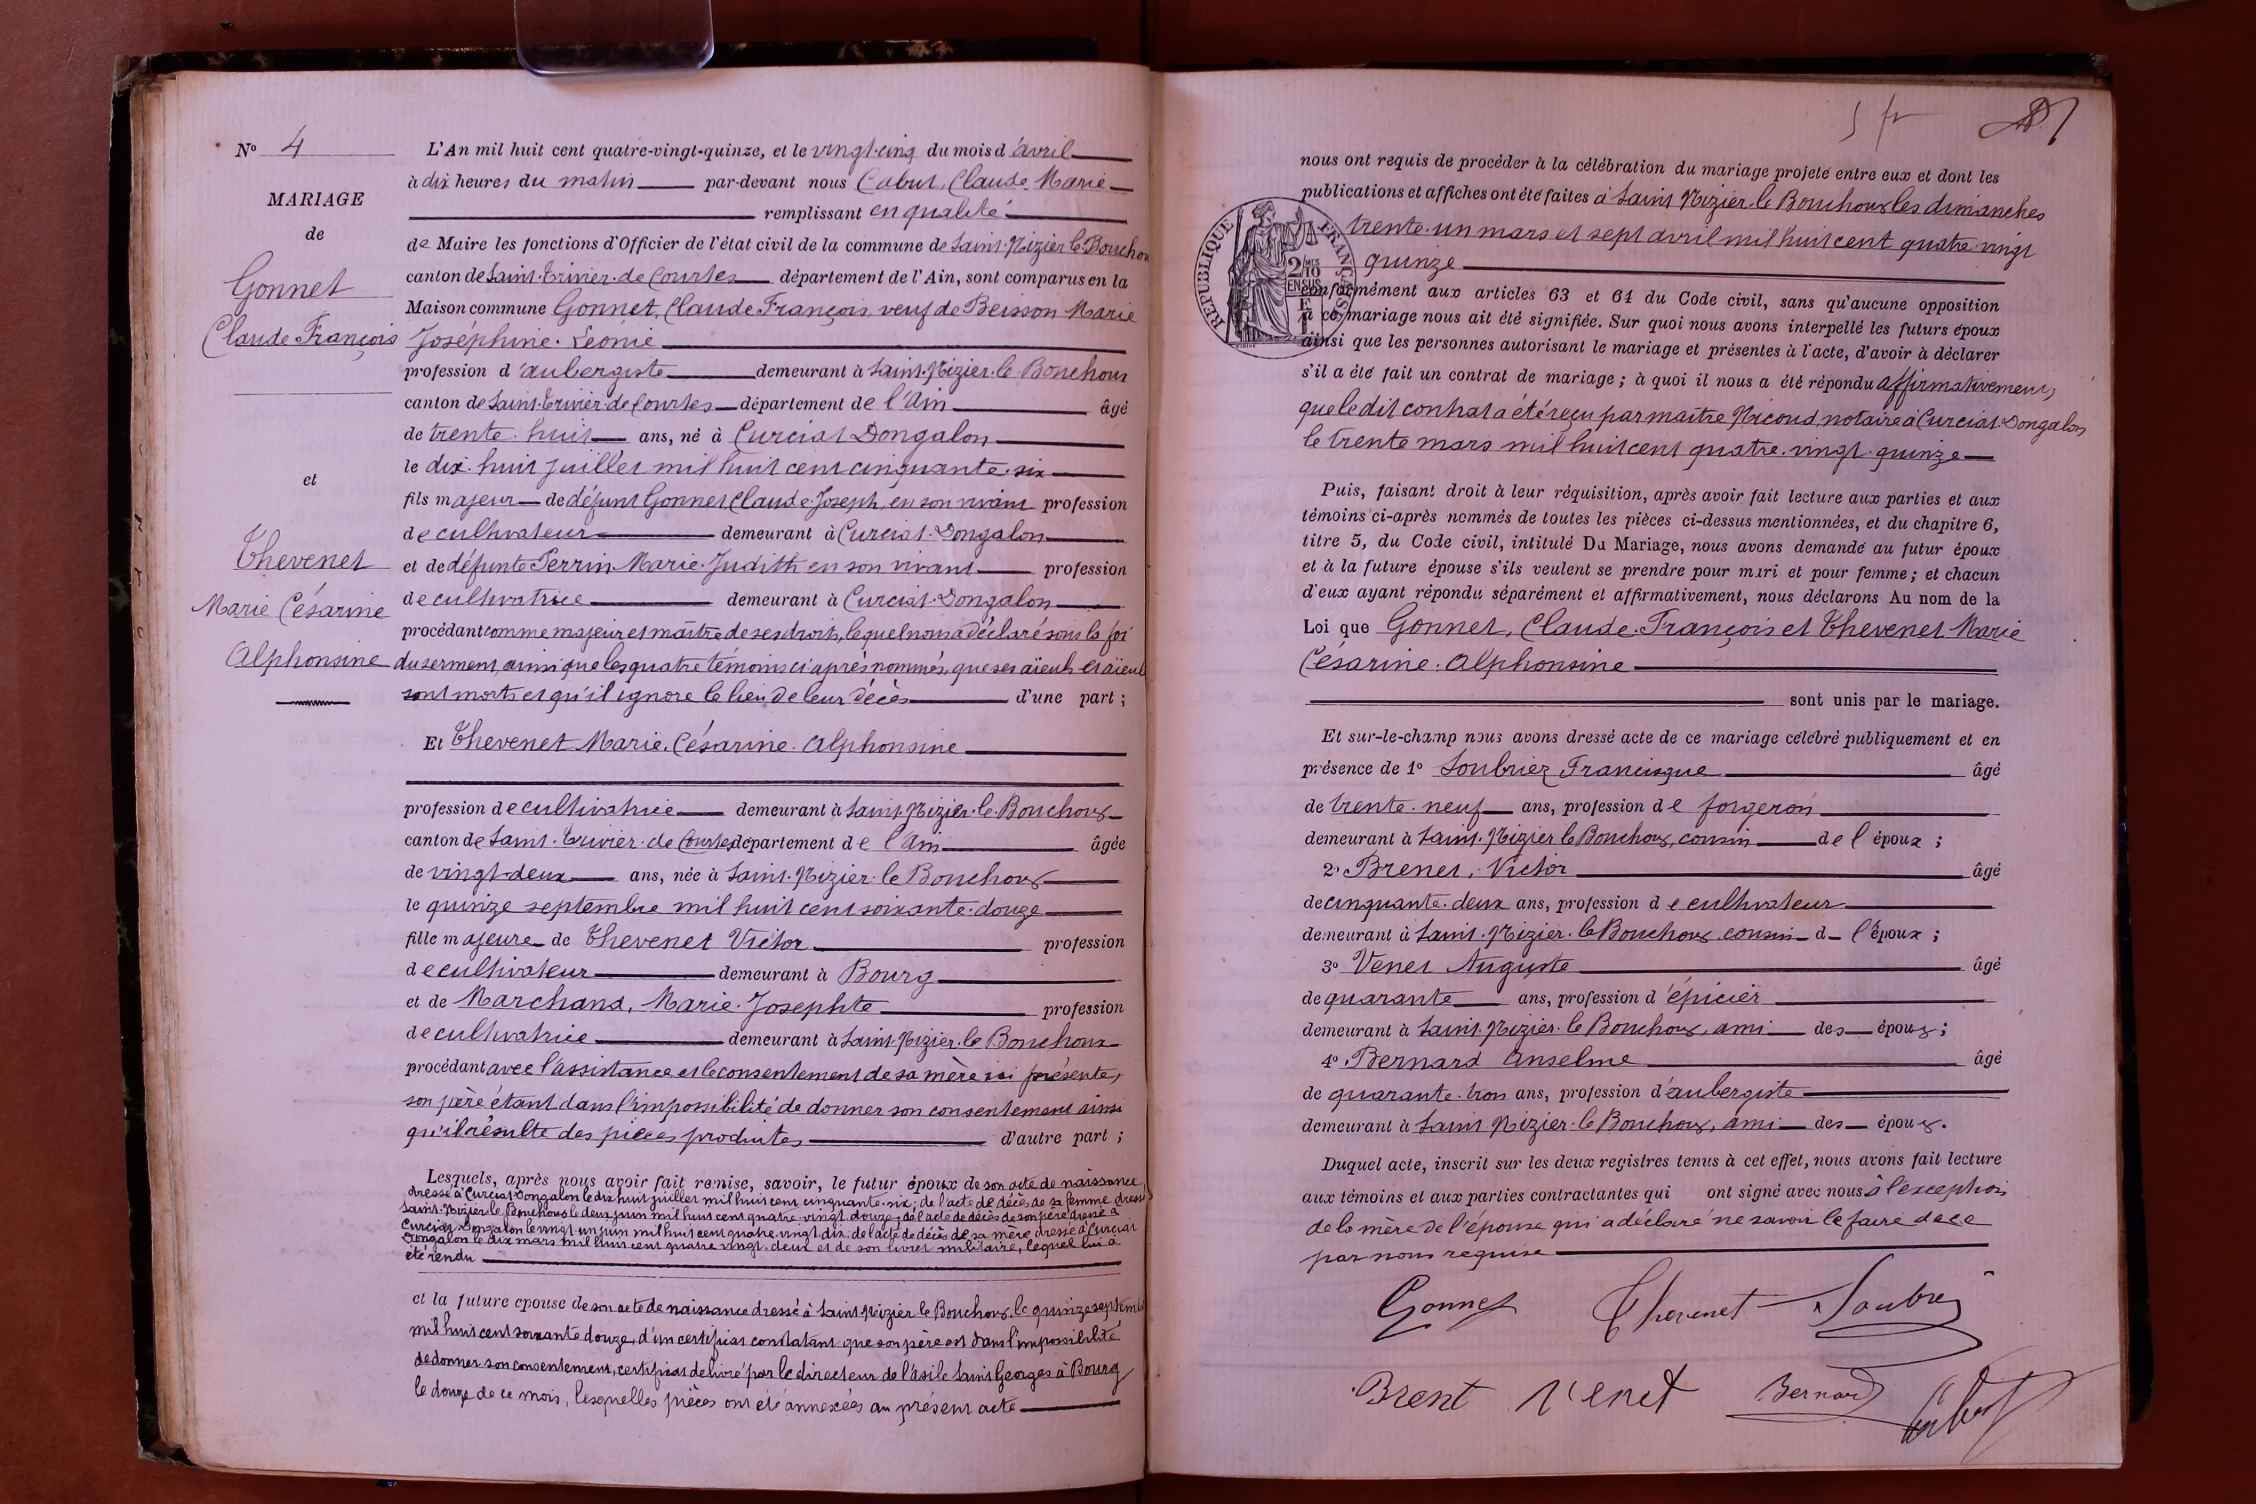 N° 4
MARIAGE
de
Gonnet
Claude François
et
Thevenet
Marie Césarine
Alphonsine
L'An mil huit cent quatre-vingt-quinze, et le vingt-cinq du mois d'avril
à dix heures du matin par-devant nous Cabut, Claude Marie
remplissant en qualité
de Maire les fonctions d'Officier de l'état civil de la commune de Saint-Nizier-le-Bouchoux
canton de Saint-Trivier-de-Courtes département de l'Ain, sont comparus en la
Maison commune Gonnet, Claude François veuf de Beisson Marie
Joséphine-Léonie
profession d'aubergiste demeurant à Saint-Nizier-le-Bouchoux
canton de Saint-Trivier-de-Courtes département de l'Ain âgé
de trente-huit ans, né à Curciat-Dongalon
le dix-huit juillet mil huit cent cinquante-six
fils majeur de défunt Gonnet Claude-Joseph en son vivant profession
de cultivateur demeurant à Curciat-Dongalon
et de défunte Perrin Marie-Judith en son vivant profession
de cultivatrice demeurant à Curciat-Dongalon
procédant comme majeur et maître de ses droits, lequel nous a déclaré sous la foi
du serment, ainsi que les quatre témoins ci-après nommés, que ses aïeuls et aïeules
sont morts et qu'il ignore le lieu de leur décès d'une part ;
Et Thevenet Marie-Césarine-Alphonsine
profession de cultivatrice demeurant à Saint-Nizier-le-Bouchoux
canton de Saint-Trivier-de-Courtes département de l'Ain âgée
de vingt-deux ans, née à Saint-Nizier-le-Bouchoux
le quinze septembre mil huit cent soixante-douze
fille majeure de Thevenet Victor profession
de cultivateur demeurant à Bourg
et de Marchand, Marie-Josephte profession
de cultivatrice demeurant à Saint-Nizier-le-Bouchoux
procédant avec l'assistance et le consentement de sa mère ici présente,
son père étant dans l'impossibilité de donner son consentement ainsi
qu'il résulte des pièces produites d'autre part ;
Lesquels, après nous avoir fait remise, savoir, le futur époux de son acte de naissance
dressé à Curciat-Dongalon le dix huit juillet mil huit cent cinquante-six ; de l'acte de décès de sa femme dressé
Saint-Nizier-le-Bouchoux le deux juin mil huit cent quatre-vingt-douze ; de l'acte de décès de son père dressé à
Curciat-Dongalon le vingt un juin mil huit cent quatre-vingt-dix ; de l'acte de décès de sa mère dressé à Curciat
Dongalon le dix mars mil huit cent quatre vingt-deux et de son livret militaire, lequel lui a
été rendu
et la future épouse de son acte de naissance dressé à Saint-Nizier-le-Bouchoux, le quinze septembre
mil huit cent soixante douze, d'un certificat constatant que son père est dans l'impossibilité
de donner son consentement, certificat délivré par le directeur de l'asile Saint Georges à Bourg
le douze de ce mois, lesquelles pièces ont été annexées au présent acte
5 fr
RÉPUBLIQUE FRANÇAISE
2/10 MES
EN SUS
nous ont requis de procéder à la célébration du mariage projeté entre eux et dont les
publications et affiches ont été faites à Saint Nizier-le-Bouchoux les dimanches
trente-un mars et sept avril mil huit cent quatre-vingt
quinze
conformément aux articles 63 et 64 du Code civil, sans qu'aucune opposition
à ce mariage nous ait été signifiée. Sur quoi nous avons interpellé les futurs époux
ainsi que les personnes autorisant le mariage et présentes à l'acte, d'avoir à déclarer
s'il a été fait un contrat de mariage ; à quoi il nous a été répondu affirmativement,
que le dit contrat a été reçu par maître Nicoud, notaire à Curciat-Dongalon
le trente mars mil huit cent quatre-vingt-quinze
Puis, faisant droit à leur réquisition, après avoir fait lecture aux parties et aux
témoins ci-après nommés de toutes les pièces ci-dessus mentionnées, et du chapitre 6,
titre 5, du Code civil, intitulé Du Mariage, nous avons demandé au futur époux
et à la future épouse s'ils veulent se prendre pour mari et pour femme ; et chacun
d'eux ayant répondu séparément et affirmativement, nous déclarons Au nom de la
Loi que Gonnet, Claude-François et Thevenet Marie
Césarine-Alphonsine
sont unis par le mariage.
Et sur-le-champ nous avons dressé acte de ce mariage célébré publiquement et en
présence de 1° Soubriez Francisque âgé
de trente-neuf ans, profession de forgeron
demeurant à Saint-Nizier le Bouchoux, cousin de l'époux ;
2° Brenet, Victor âgé
de cinquante-deux ans, profession de cultivateur
demeurant à Saint-Nizier-le-Bouchoux cousin d l'époux ;
3° Venet Auguste âgé
de quarante ans, profession d'épicier
demeurant à Saint-Nizier-le Bouchoux, ami des époux ;
4° Bernard Anselme âgé
de quarante-trois ans, profession d'aubergiste
demeurant à Saint Nizier-le Bouchoux, ami des époux.
Duquel acte, inscrit sur les deux registres tenus à cet effet, nous avons fait lecture
aux témoins et aux parties contractantes qui ont signé avec nous à l'exception
de la mère de l'épouse qui a déclaré ne savoir le faire de ce
par nous requise
Gonnet Thevenet Soubrié
Brent Venet Bernard Cabut